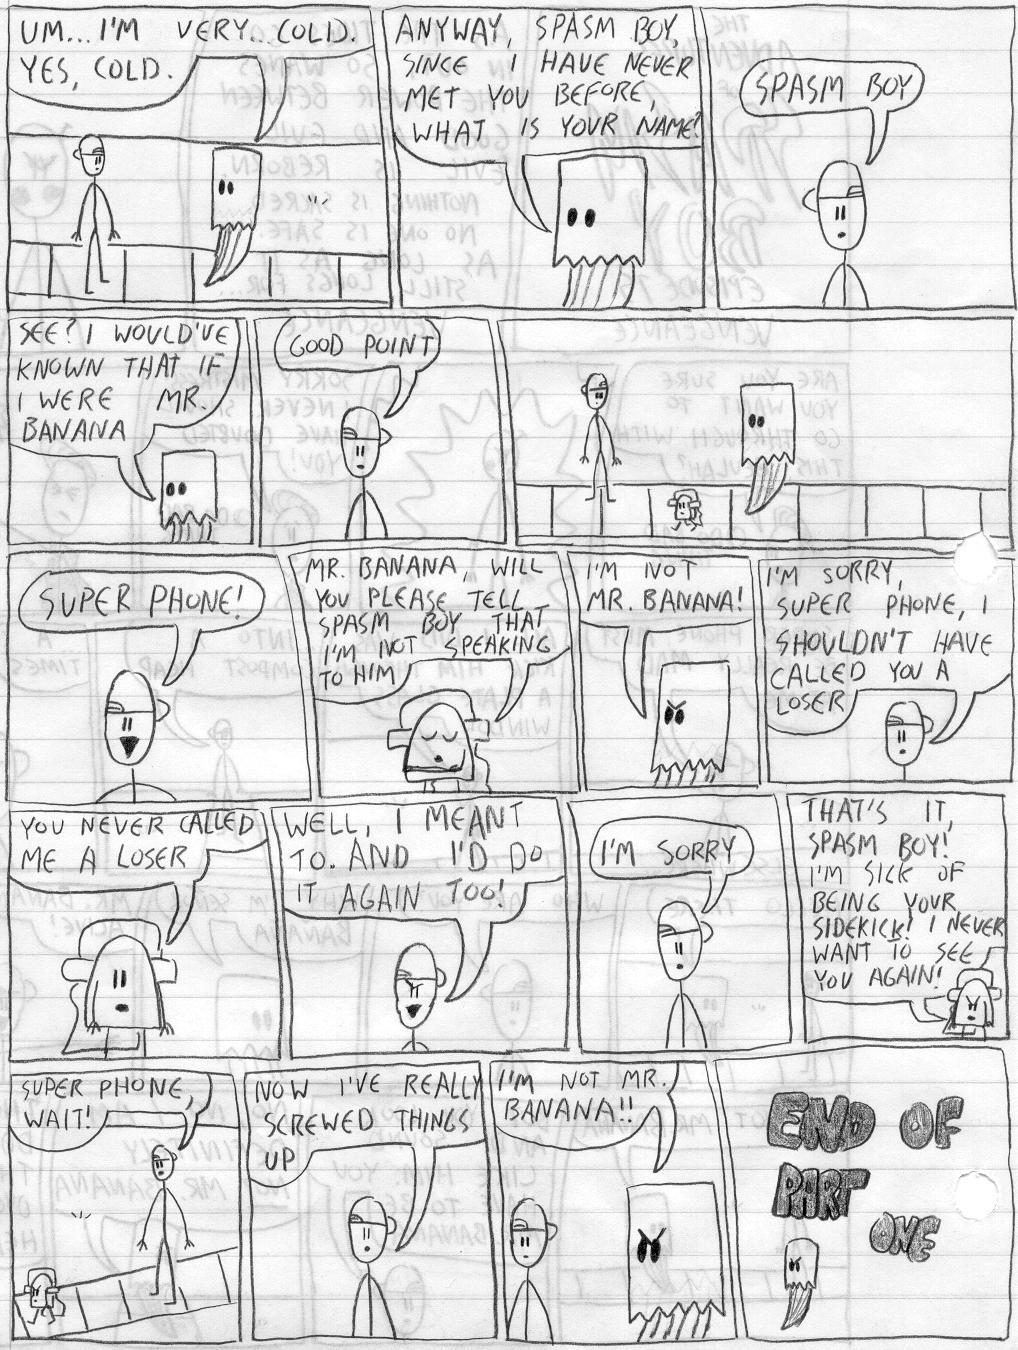 UM... I'M VERY...COLD.
YES, COLD.
ANYWAY, SPASM BOY,
SINCE I HAVE NEVER
MET YOU BEFORE,
WHAT IS YOUR NAME?
SPASM BOY
SEE? I WOULD'VE
KNOWN THAT IF
I WERE MR.
BANANA
GOOD POINT
SUPER PHONE!
MR. BANANA, WILL
YOU PLEASE TELL
SPASM BOY THAT
I'M NOT SPEAKING
TO HIM
I'M NOT
MR. BANANA!
I'M SORRY,
SUPER PHONE, I
SHOULDN'T HAVE
CALLED YOU A
LOSER
YOU NEVER CALLED
ME A LOSER
WELL, I MEANT
TO. AND I'D DO
IT AGAIN TOO!
I'M SORRY
THAT'S IT,
SPASM BOY!
I'M SICK OF
BEING YOUR
SIDEKICK! I NEVER
WANT TO SEE
YOU AGAIN!
SUPER PHONE,
WAIT!
NOW I'VE REALLY
SCREWED THINGS
UP
I'M NOT MR.
BANANA!!
END OF
PART
ONE